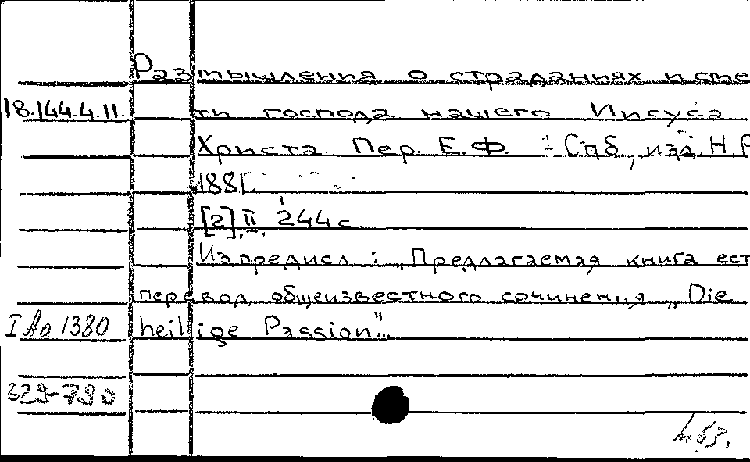 Размышления о страданиях и сме
18.144.4.11 ти господа нашего Иисуса
Христа Пер. Е.Ф. - Спб, изд. Н.
1881.
[2], II, 244 с
Из предисл.: „Предлагаемая книга ест
перевод общеизвестного сочинения „Die
I Aa 1380 heilige Passion"...
329-790